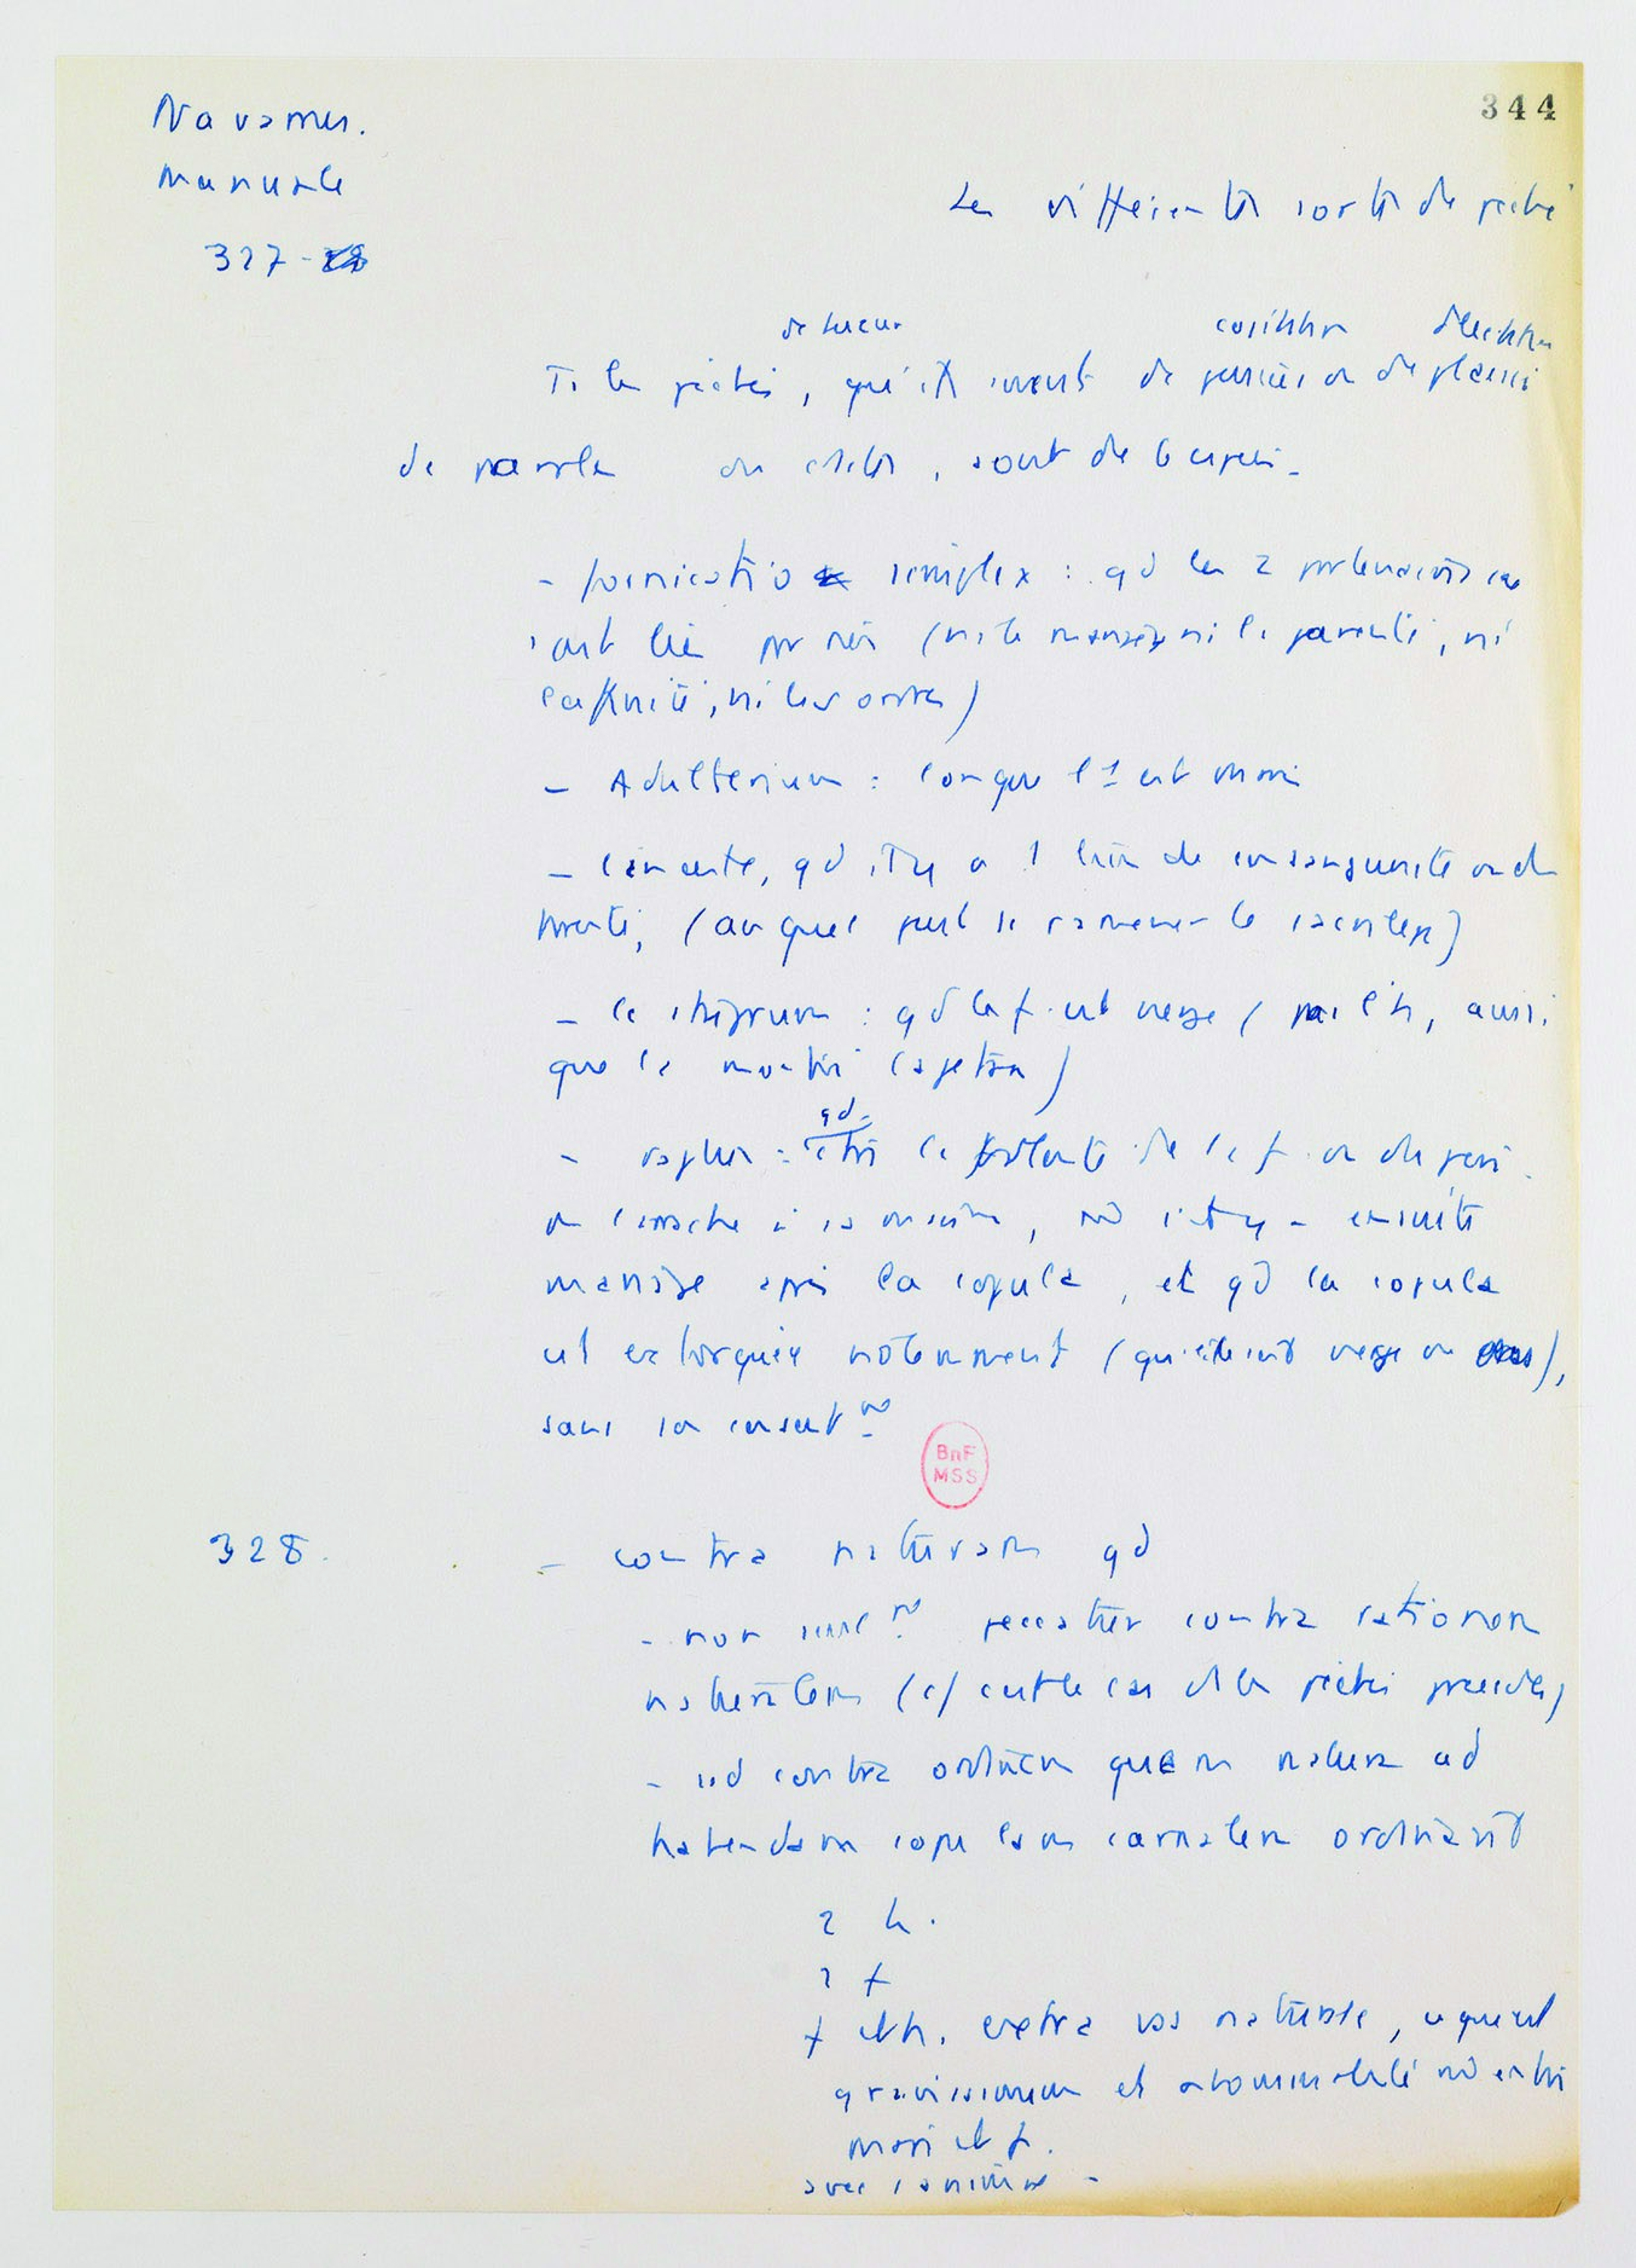 344
Navarrus.
Manuale
327-
Les différentes sortes de péché
de luxure
Ts les péchés, qu'ils soient de pensée ou de plaisir
de paroles ou actes, sont de 6 espèces.
- fornicatio simplex : qd les 2 partenaires ne
sont liés par rien (ni le mariage ni la parenté, ni
l'affinité, ni les ordres)
- Adulterium : lorsque l'1 est marié
- l'inceste, qd il y a 1 lien de consanguinité ou de
parenté, (auquel peut se ramener le sacrilège)
- le stuprum : qd la f. est vierge (pas l'h, aussi
que le montre Cajetan)
qd
- raptus : ctre la volonté de la f. ou du père
on l'arrache à sa maison, md s'il y a ensuite
mariage après la copula, et qd la copula
est extorquée violemment (qu'elle soit vierge ou),
sans son consentt
BnF
MSS
328.
- contra naturam qd
- non seult peccatur contra rationem
naturalem (c/ est le cas ds les péchés précédts)
- sed contra ordinem quem natura ad
habendam copulam carnalem ordinavit
2 h.
2 f
f et h. extra vas naturale, ce qui est
gravissimum et abominabile md entre
mari et f.
avec animaux -